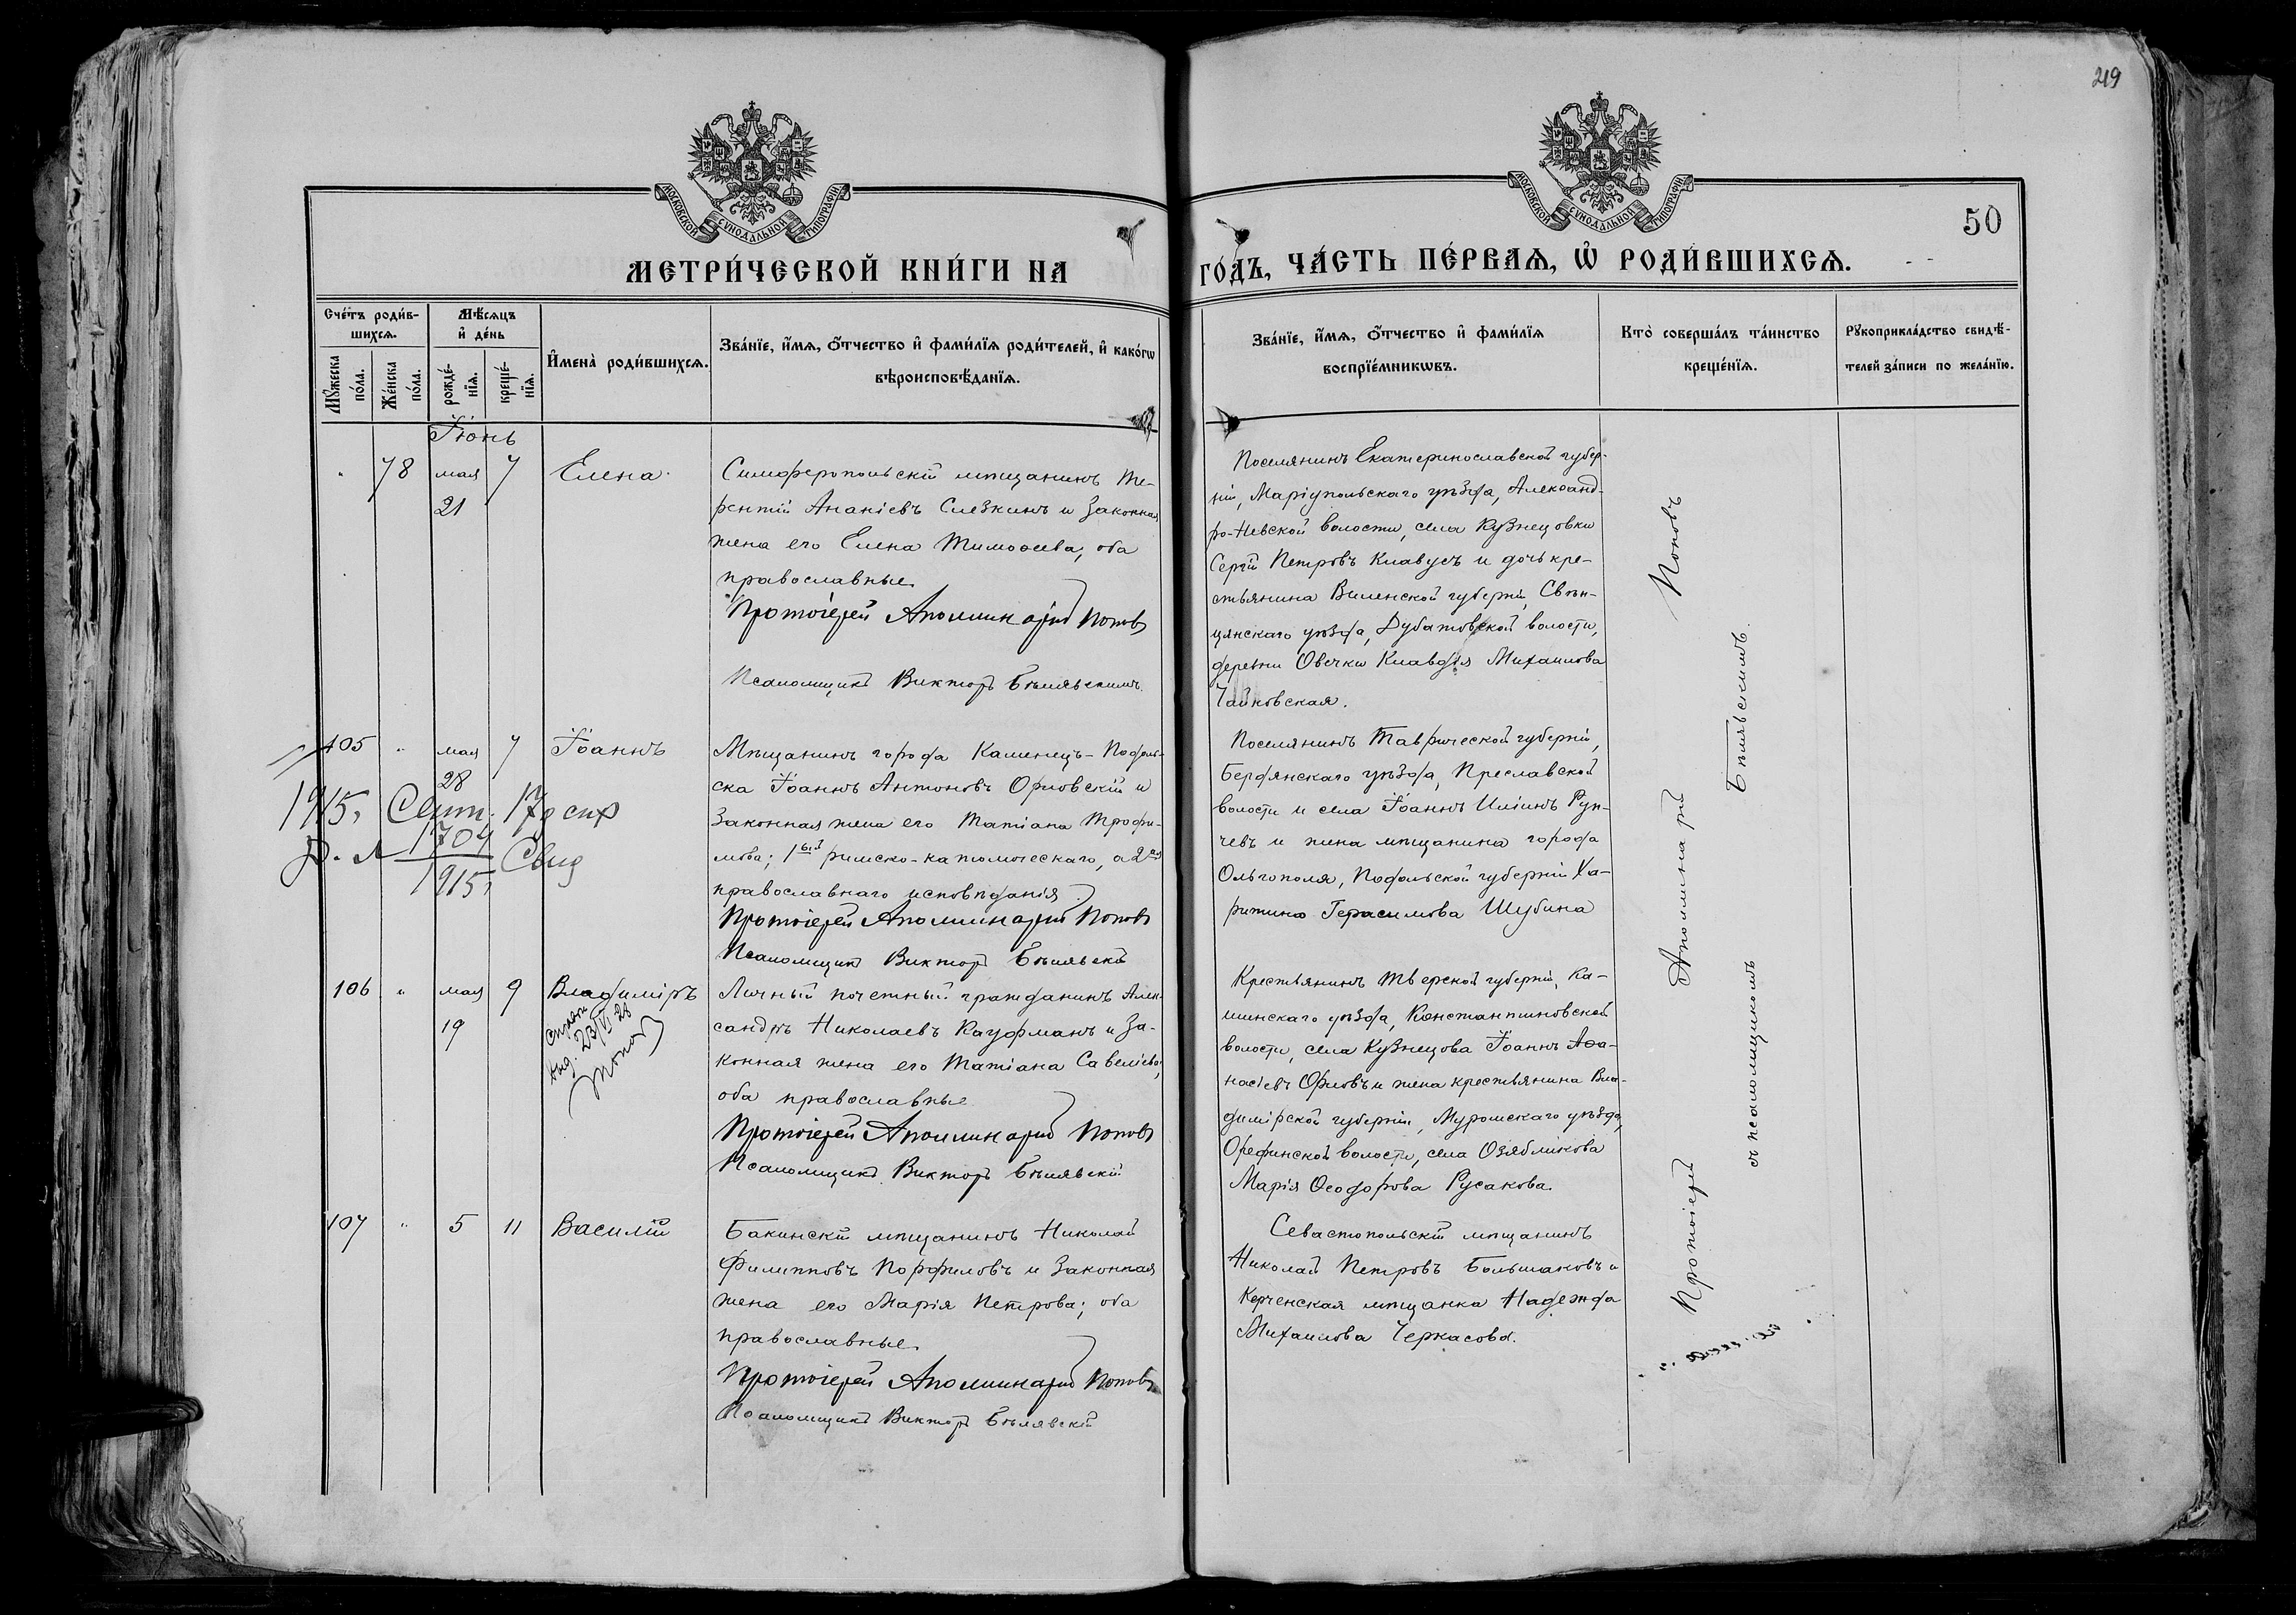 219
МОСКОВСКОЙ СѴНОДАЛЬНОЙ ТИПОГРАФІИ
МОСКОВСКОЙ СѴНОДАЛЬНОЙ ТИПОГРАФІИ
50
МЕТРИ́ЧЕСКОЙ КНИ́ГИ НА
ГО́ДЪ, ЧА́СТЬ ПЕ́РВАѦ, Ѡ҆ РОДИ́ВШИХСѦ.
Сче́тъ роди́в-
шихсѧ.
Мѹ́жеска по́ла.
Же́нска по́ла.
Мѣ́сѧцъ
и҆ де́нь
рожде́-
нїѧ.
креще́-
нїѧ.
И҆мена̀ роди́вшихсѧ.
Зва́нїе, и҆́мѧ, ѻ҆́тчество и҆ фами́лїѧ роди́телей, и҆ како́гѡ
вѣроисповѣ́данїѧ.
Зва́нїе, и҆́мѧ, ѻ҆́тчество и҆ фами́лїѧ
воспрїе́мникѡвъ.
Кто̀ соверша́лъ та́инство
креще́нїѧ.
Рѹкоприкла́дство свидѣ́-
телей за́писи по жела́нїю.
Іюнь
" 78 мая 7 Елена.
21
Симферопольскій мѣщанинъ Те-
рентій Ананіевъ Слезкинъ и законная
жена его Елена Тимоѳеева, оба
православные.
Протоіерей Аполлинарій Поповъ
Псаломщикъ Викторъ Бѣлявскій
Поселянинъ Екатеринославской губер-
ніи, Маріупольскаго уѣзда, Александ-
ро-Невской волости, села Кузнецовки
Сергій Петровъ Клавусъ и дочь кре-
стьянина Виленской губерніи, Свѣн-
цянскаго уѣзда, Дубатовской волости,
деревни Овечки Клавдія Михаилова
Чайковская.
105 " мая 7 Іоаннъ
28
Мѣщанинъ города Каменецъ-Подоль-
ска Іоаннъ Антоновъ Орловскій и
законная жена его Татіана Трофи-
мова; 1ый римско-католическаго, а 2ая
православнаго исповѣданія
Протоіерей Аполлинарій Поповъ
Псаломщикъ Викторъ Бѣлявскій
1915. Сент. 17
1704
1915 Свид
Поселянинъ Таврической губерніи,
Бердянскаго уѣзда, Преславской
волости и села Іоаннъ Иліинъ Рун-
чевъ и жена мѣщанина города
Ольгополя, Подольской губерніи Ха-
ритина Герасимова Шубина
106 " мая 9 Владиміръ
19
23/VI 28
Личный почетный гражданинъ Алек-
сандръ Николаевъ Кауфманъ и за-
конная жена его Татіана Савеліева,
оба православные
Протоіерей Аполлинарій Поповъ
Псаломщикъ Викторъ Бѣлявскій
Крестьянинъ Тверской губерніи, Ка-
шинскаго уѣзда, Константиновской
волости, села Кузнецова Іоаннъ Аѳа-
насіевъ Орловъ и жена крестьянина Вла-
димірской губерніи, Муромскаго уѣзда,
Орефинской волости, села Озябликова
Марія Ѳеодорова Русакова.
107 " 5 11 Василій
Бакинскій мѣщанинъ Николай
Филипповъ Порфиловъ и законная
жена его Марія Петрова; оба
православные.
Протоіерей Аполлинарій Поповъ
Псаломщикъ Викторъ Бѣлявскій
Севастопольскій мѣщанинъ
Николай Петровъ Большаковъ и
Керченская мѣщанка Надежда
Михаилова Черкасова.
Протоіерей Аполлинарій Поповъ
съ псаломщикомъ Бѣлявскимъ.